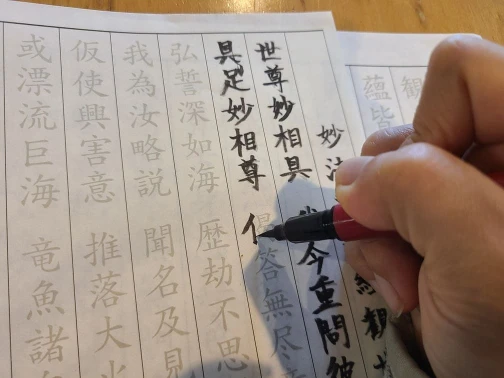 觀
蘊皆
妙法 經觀
世尊妙相具 今重問彼
具足妙相尊 偈答無尽
弘誓深如海 歴劫不思
我為汝略説 聞名及見
仮使興害意 推落大
或漂流巨海 竜魚諸